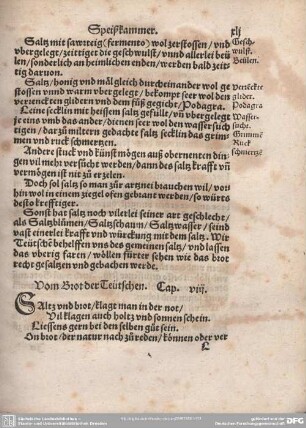 Speißkammer. xlj
Saltz mit sawrteig (fermento) wol zerstossen / vnd
vbergelegt / zeittiget die geschwulst / vnnd allerlei beü
len / sonderlich an heimlichen enden / werden bald zeit
tig daruon.
Gesch
wulst.
Beülen.
Saltz / honig vnd mäl gleich durcheinander wol ge
stossen vnnd warm vbergelegt / bekompt seer wol den
verrenckten glidern vnd dem füß gegicht / Podagra.
verrückte
glider.
Podagra
Leine secklin mit heissem saltz gefüllt / vñ vbergelegt
je eins vmb das ander / dienen seer wol den wassersuch
tigen / darzu miltern gedachte saltz secklin das grim=
men und ruck schmertzen.
Wasser=
sucht.
Grimme
Ruck
schmertzẽ
Ander stuck vnd künst mögen auß obernenten din
gen vil mehr versucht werden / dann des saltz krafft vñ
vermögen ist nit zu erzelen.
Doch sol saltz so man zur artznei brauchen wil / vor
hin wol in einem ziegel ofen gebrant werden / so würts
desto krefftiger.
Sonst hat saltz noch vilerlei seiner art geschlecht /
als Saltzblůmen / Saltzschaum / Saltzwasser / seind
vast einerlei krafft vnd würckung mit dem saltz. Wir
Teütschẽ behelffen vns des gemeinen saltz / vnd lassen
das vberig faren / wöllen fürter sehen wie das brot
recht gesaltzen vnd gebachen werde.
Vom Brot der Teütschen. Cap. viij.
SAltz vnd brot / klagt man in der not /
Vil klagen auch holtz vnd sonnen schein.
Liessens gern bei den selben gůt sein.
On brot / der natur nach zů reden / können oder ver
L